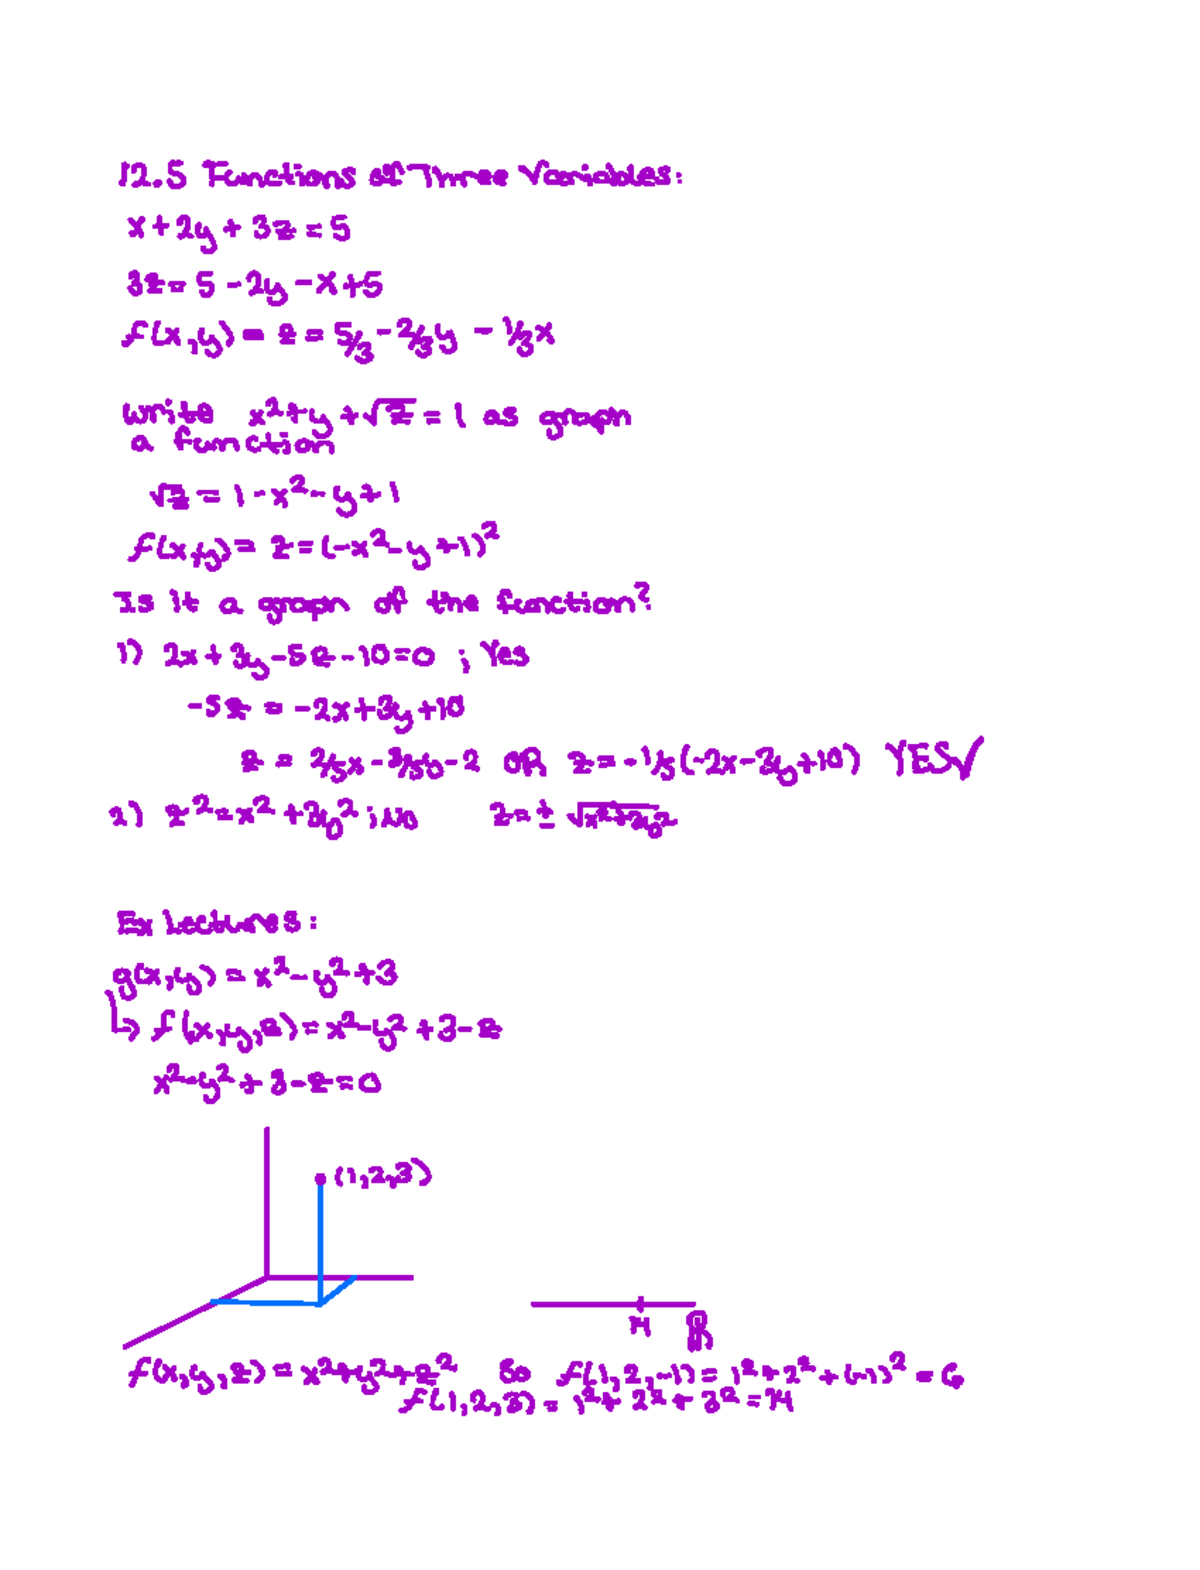 12.5 Functions of Three Variables:
x + 2y + 3z = 5
3z = 5 - 2y - x + 5
f(x,y) = z = 5/3 - 2/3y - 1/3x
write x² + y + √z = 1 as graph
a function
√z = 1 - x² - y + 1
f(x,y) = z = (-x² - y + 1)²
Is it a graph of the function?
1) 2x + 3y - 5z - 10 = 0 ; Yes
-5z = -2x + 3y + 10
z = 2/5x - 3/5y - 2 OR z = -1/5(-2x - 3y + 10) YES✓
2) z² = x² + 3y² ; No z = ± √x² + 3y²
Ex lectures:
g(x,y) = x² - y² + 3
↳ f(x,y,z) = x² - y² + 3 - z
x² - y² + 3 - z = 0
(1,2,3)
14 ℝ
f(x,y,z) = x² + y² + z² So f(1,2,-1) = 1² + 2² + (-1)² = 6
f(1,2,3) = 1² + 2² + 3² = 14